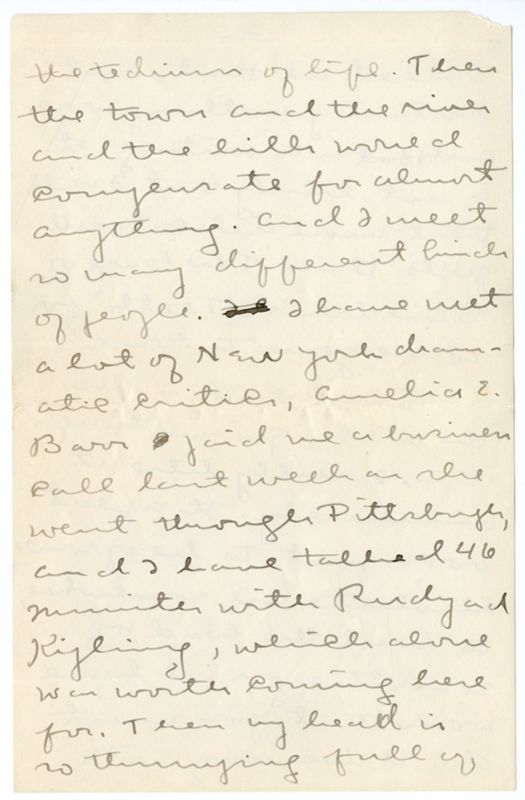 the tedium of life. Then
the town and the river
and the hills would
compensate for almost
anything. And I meet
so many different kinds
of people. I have met
a lot of New York dram-
atic critics, Amelia E.
Barr paid me a business
call last week as she
went through Pittsburgh,
and I have talked 40
minutes with Rudyard
Kipling, which alone
was worth coming here
for. Then my head is
so thumping full of